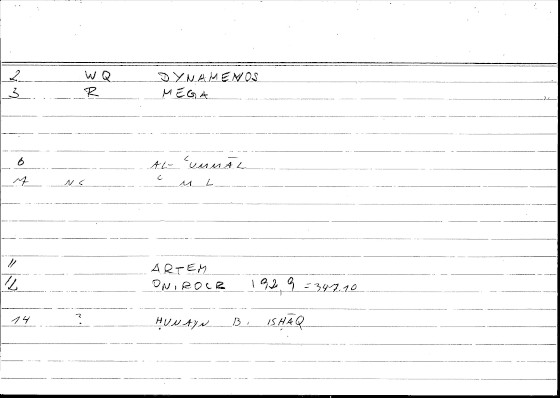 2 WQ DYNAMENOS
3 R MEGA
6 AL-ʿUMMĀL
7 NC ʿ M L
11 ARTEM
12 ONIROCR 192,9 =347.10
14 ? ḤUNAYN B. ISḤĀQ